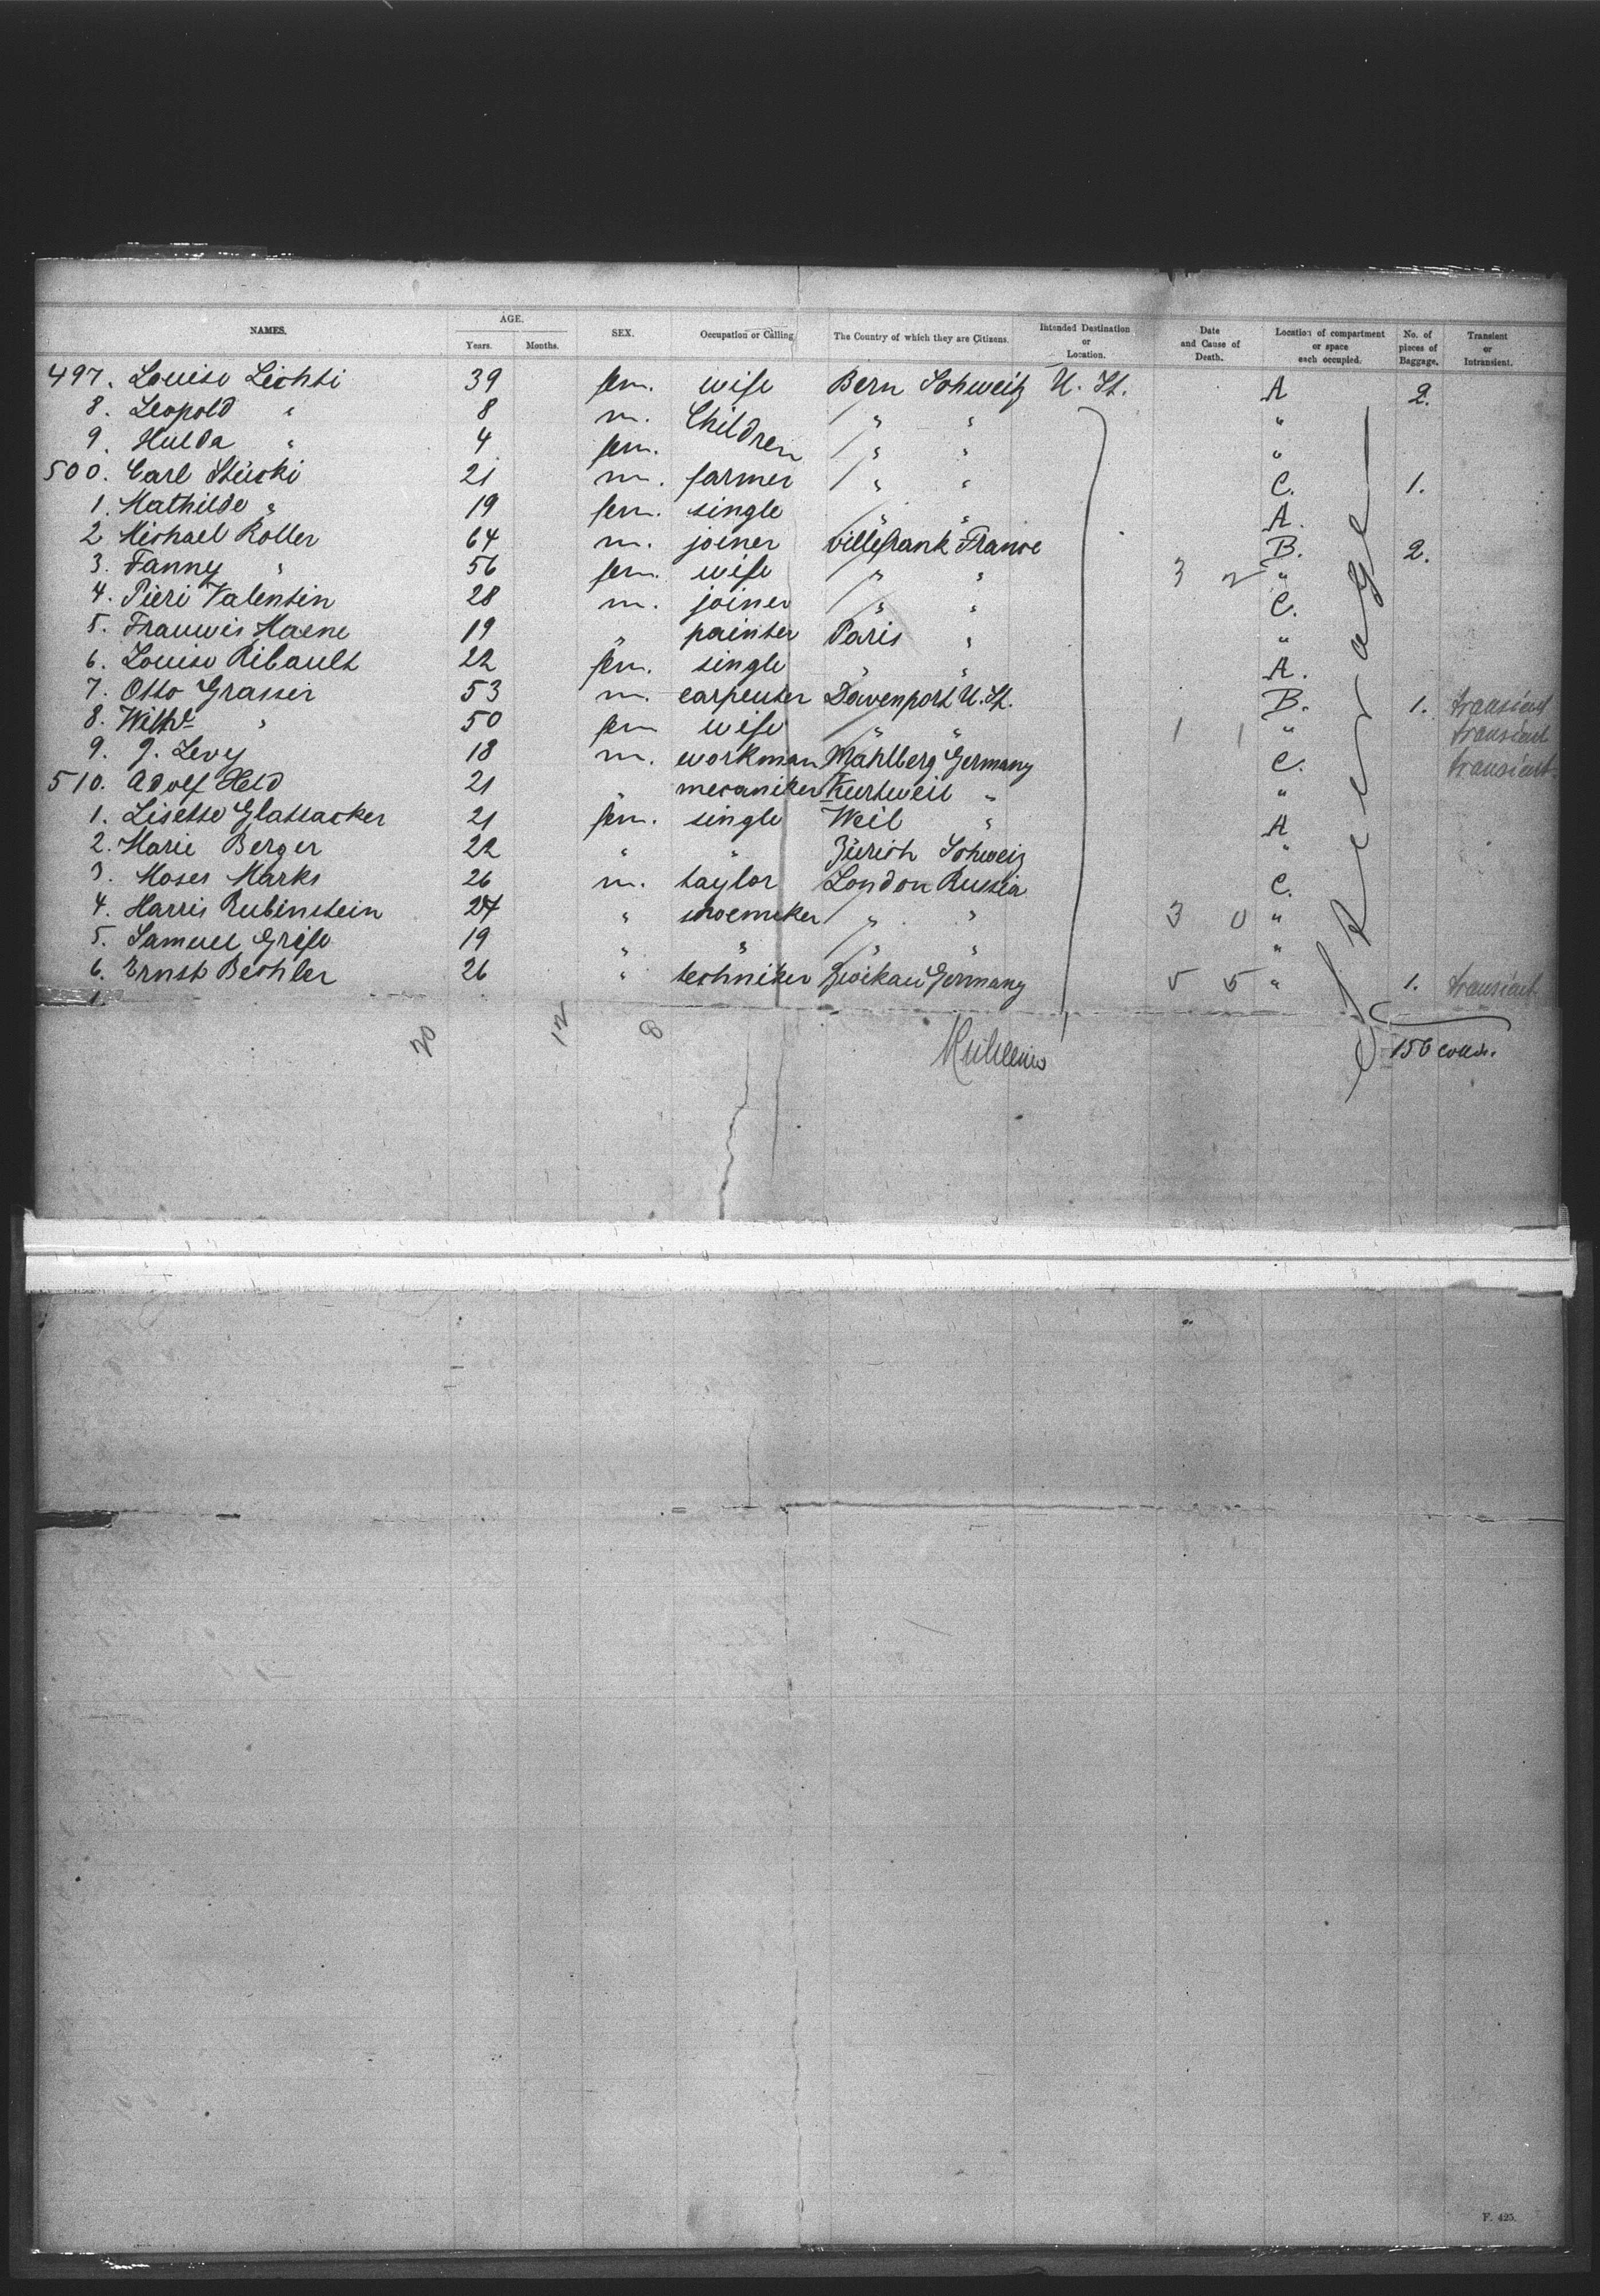 NAMES. AGE. Years. Months. SEX. Occupation or Calling The Country of which they are Citizens. Intended Destination or Location. Date and Cause of Death. Location of compartment or space each occupied. No. of pieces of Baggage. Transient or Intransient.
497. Louise Liechti 39 fem. wife Bern Schweitz U. St. A 2.
8. Leopold " 8 m. Children " " "
9. Hulda " 4 fem. " " "
500. Carl Stucki 21 m. farmer " " C. 1.
1. Mathilde " 19 fem. single " " A.
2 Michael Roller 64 m. joiner Villefrank France B. 2.
3. Fanny " 56 fem. wife " " 3 2 "
4. Pieri Valentin 28 m. joiner " " C.
5. Haene 19 " painter Paris " "
6. Louise Ribault 22 fem. single " " A.
7. Otto Grasser 53 m. carpenter Davenport U. St. B. 1. transient
8. " 50 fem wife " " 1 1 " transient
9. J. Levy 18 m. workman Mahlberg Germany C. transient
510. Adolf Held 21 " mecaniker " "
1. Lisette Glattacker 21 fem. single Weil " A
2. Marie Berger 22 " " Zürich Schweiz "
3. Moses Marks 26 m. taylor London Russia C.
4. Harris Rubinstein 27 " shoemeker " " 3 0 "
5. Samuel 19 " " " " "
6. Ernst Bechler 26 " techniker Zwickau Germany 5 5 " 1. transient
Steerage
20 12 8
156
F. 425.